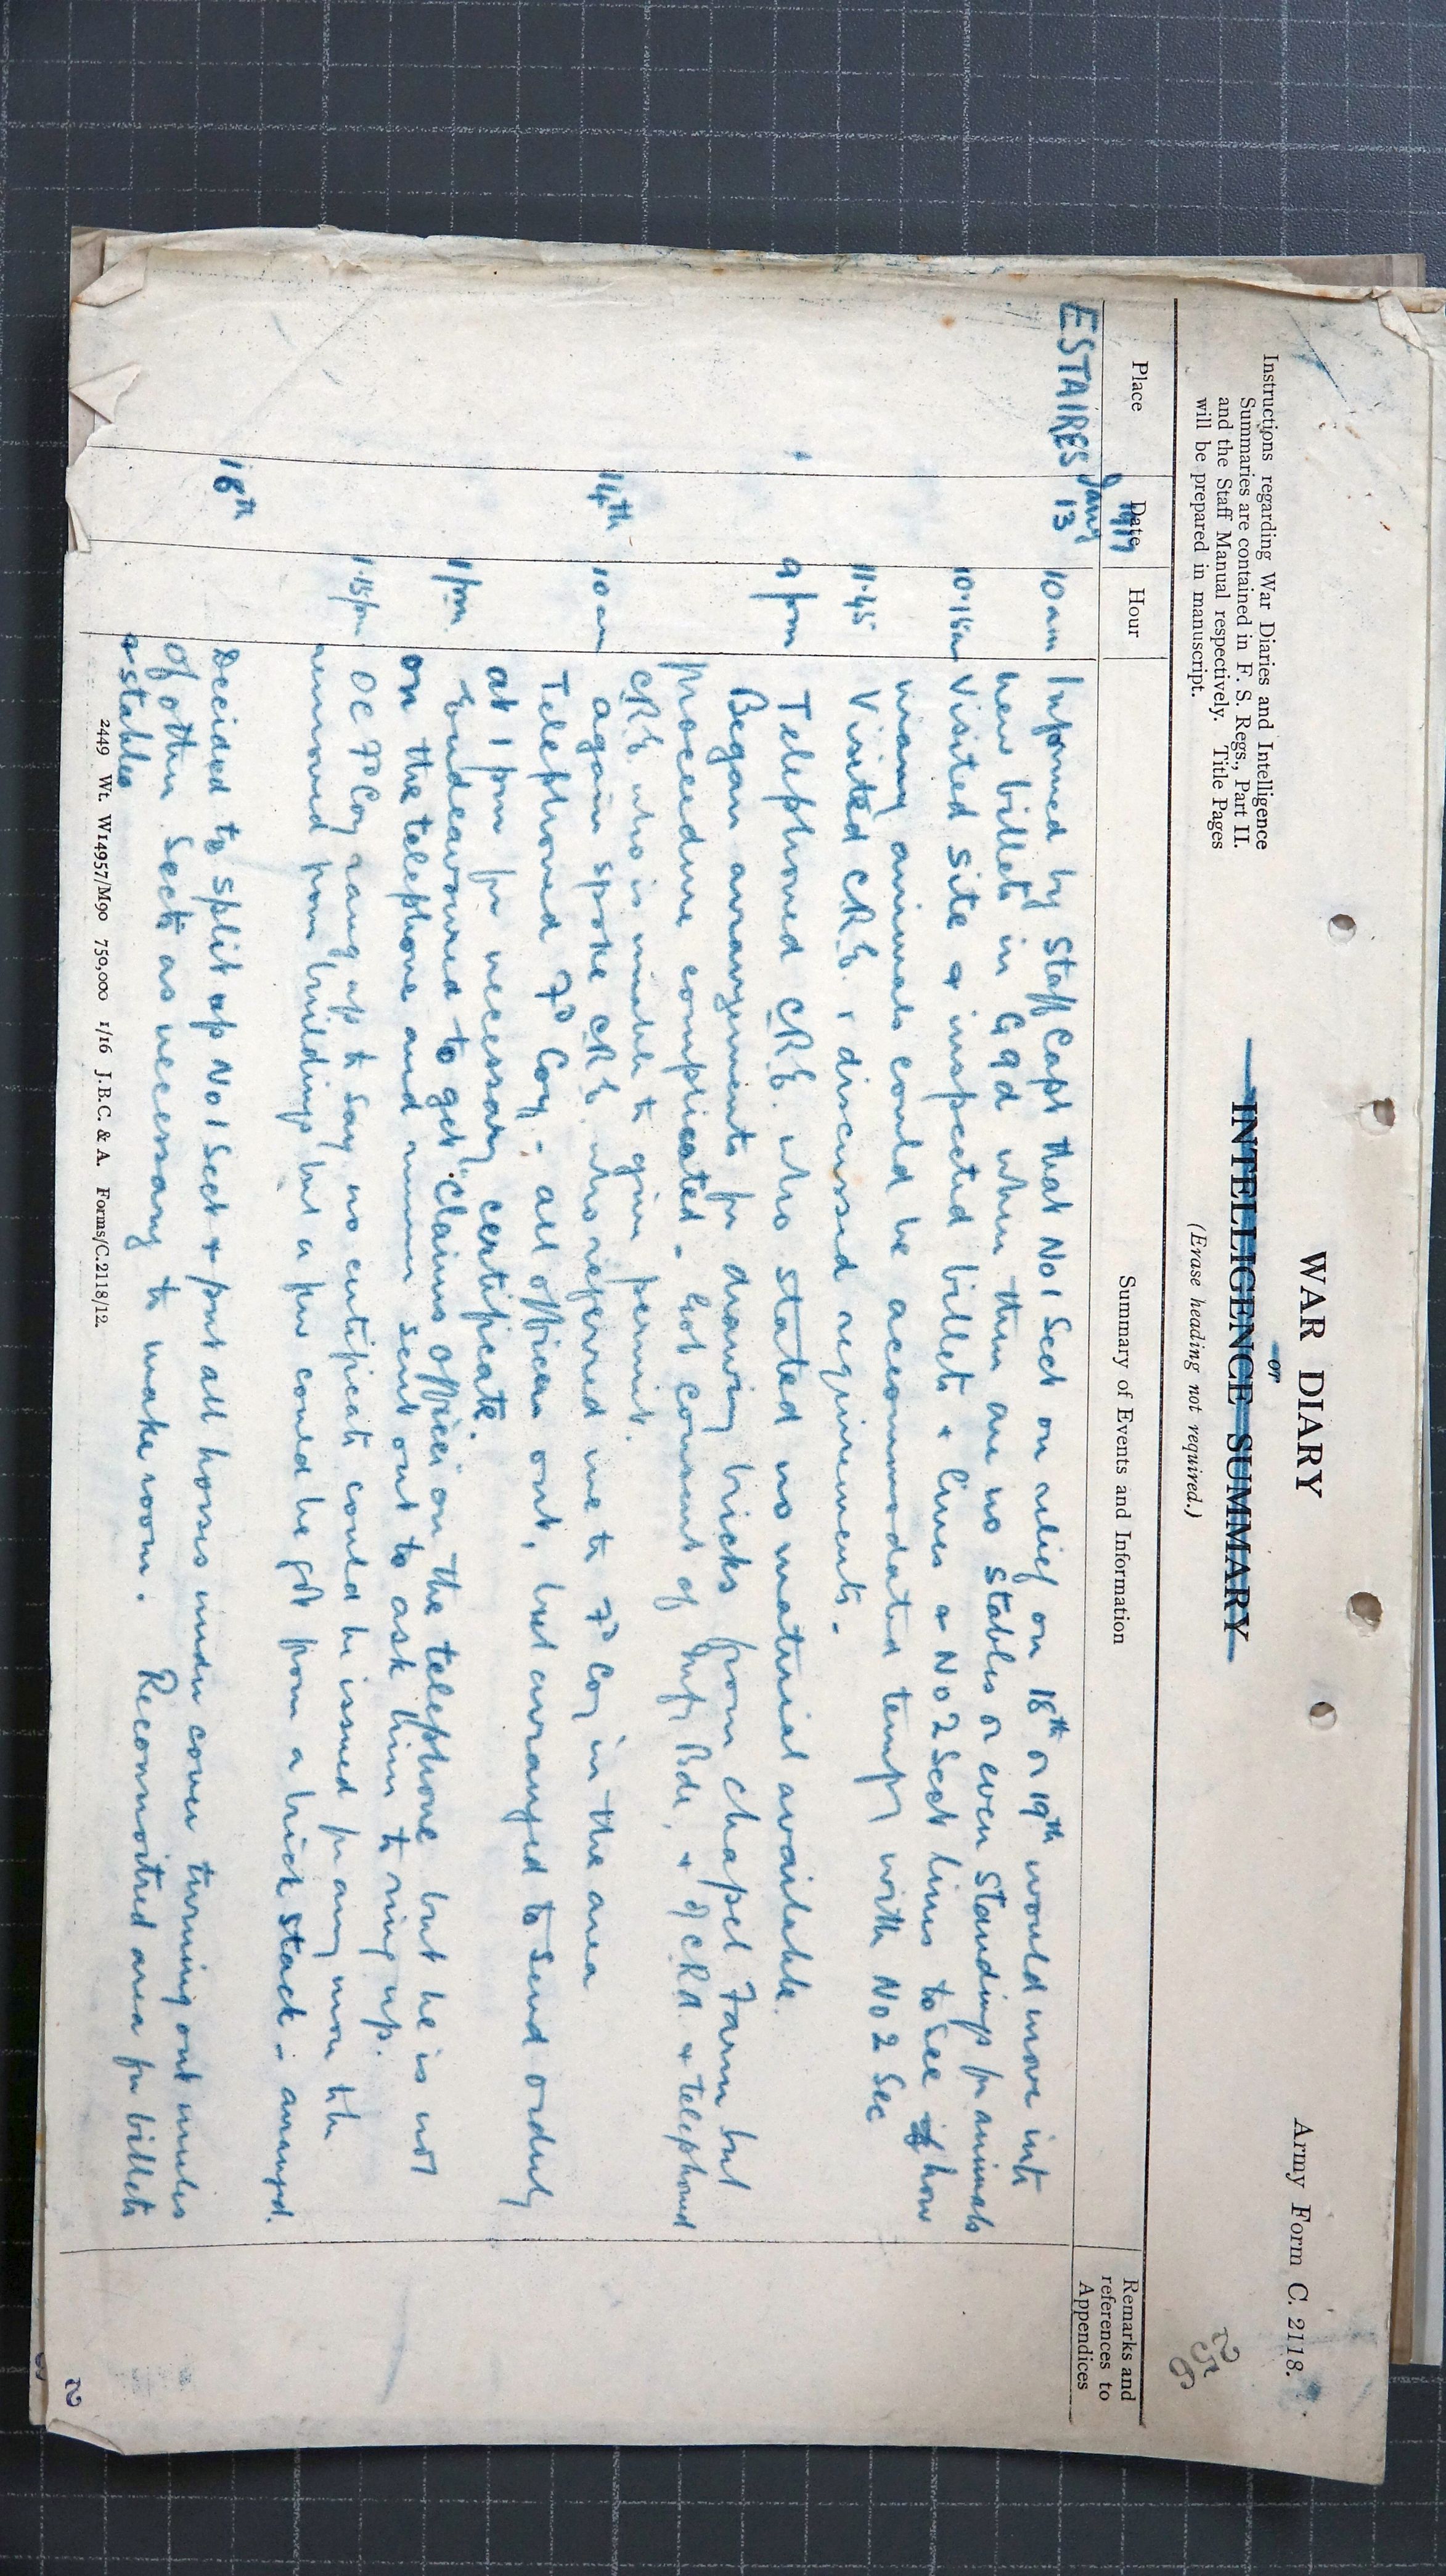 Army Form C. 2118.
WAR DIARY
or
INTELLIGENCE SUMMARY
(Erase heading not required.)
Instructions regarding War Diaries and Intelligence
Summaries are contained in F. S. Regs., Part II.
and the Staff Manual respectively. Title Pages
will be prepared in manuscript.
256
Place
Date
Hour
Summary of Events and Information
Remarks and
references to
Appendices
ESTAIRES Jany 13 10 am Informed by Staff Capt that No 1 Sect on relief on 18th or 19th would move into
new billets in G9d when there are no stables or even standings for animals
10.15am Visited site & inspected billets & lines & No 2 Sect lines to see how
many animals could be accommodated tempy with No 2 Sec
11.45 Visited CRE. & discussed requirements.
9 pm Telephoned CRE. who stated no material available.
Began arrangements for drawing bricks from Chapel Farm but
procedure complicated - Got consent of Inf Bde, & of CRA. & telephoned
CRE who is unable to give permit.
14th 10 am again spoke CRE. who referred me to 7D Coy in the area
Telephoned 7D Coy - all officers out, but arranged to send orderly
at 1 pm for necessary certificate.
1 pm. Endeavoured to get "Claims officer" on the telephone but he is not
on the telephone and runner sent out to ask him to ring up.
1.15pm OC 7D Coy rang up to say no certificate could be issued for any more to be
removed from buildings but a few could be got from a brick stack - arranged.
18th Decided to split up No 1 Sect & put all horses under cover turning out mules
of other Sects as necessary to make room. Reconnoitred area for billets
& stables
2449 Wt. W14957/M90 750,000 1/16 J.B.C. & A. Forms/C.2118/12.
2